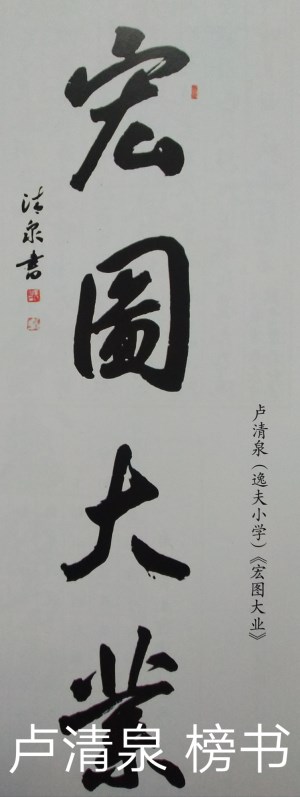 宏圖大業
清泉書
卢清泉（逸夫小学）《宏图大业》
卢清泉 榜书